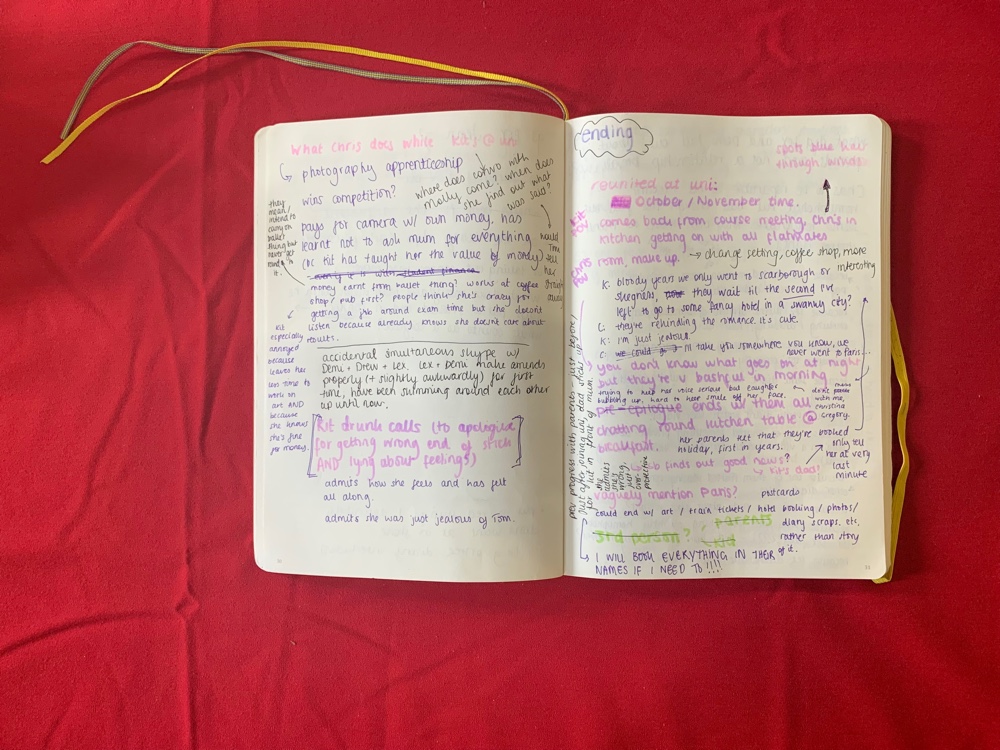 What Chris does while Kit's @ uni
↳ photography apprenticeship
wins competition?
where does convo with
Molly come? when does
she find out what
was said?
would
Tom
tell
her
straight
away
pays for camera w/ own money. has
learnt not to ask mum for everything
(bc Kit has taught her the value of money)
money earnt from ballet thing? works at coffee
shop/pub first? people think she's crazy for
getting a job around exam time but she doesn't
listen because already knows she doesn't care about
results.
they
mean/
intend to
carry on
ballet
thing but
never get
round to
it.
Kit
especially
annoyed
because
leaves her
less time to
work on
art AND
because
she knows
she's fine
for money.
accidental simultaneous skype w/
Demi + Drew + Lex. Lex + Demi make amends
properly (+ slightly awkwardly) for first
time, have been skimming around each other
up until now.
Kit drunk calls (to apologise
for getting wrong end of stick
AND lying about feelings)
admits how she feels and has felt
all along.
admits she was just jealous of Tom.
ending
spots blue hair
through window
reunited at uni:
October / November time.
Kit
POV
comes back from course meeting, Chris in
kitchen getting on with all flatmates
Chris
POV
room, make up. → change setting, coffee shop, more
interesting
K: bloody years we only went to Scarborough or
Skegness, they wait til the second I've
left to go to some fancy hotel in a swanky city?
C: they're rekindling the romance. it's cute.
K: I'm just jealous.
C: we could go I'll take you somewhere you know, we
never went to Paris...
you don't know what goes on at night
but they're v bashful in morning
trying to keep her voice serious but laughter
bubbling up, hard to keep smile off her face.
don't
with me,
christina
gregory.
pre-epilogue ends w/ them all
chatting round kitchen table @
breakfast.
her parents text that they've booked
holiday, first in years.
only tell
her at very
last
minute
finds out good news?
↳ Kit's dad!
vaguely mention Paris?
postcards
could end w/ art / train tickets / hotel booking / photos/
diary scraps. etc.
rather than story
of it.
3rd person?
parents
I WILL BOOK EVERYTHING IN THEIR
NAMES IF I NEED TO!!!!
prev progress with parents - just before/
just after joining uni, dad sticks up
for Kit in front of mum.
she
admits
she's
wrong,
just
over-
protective